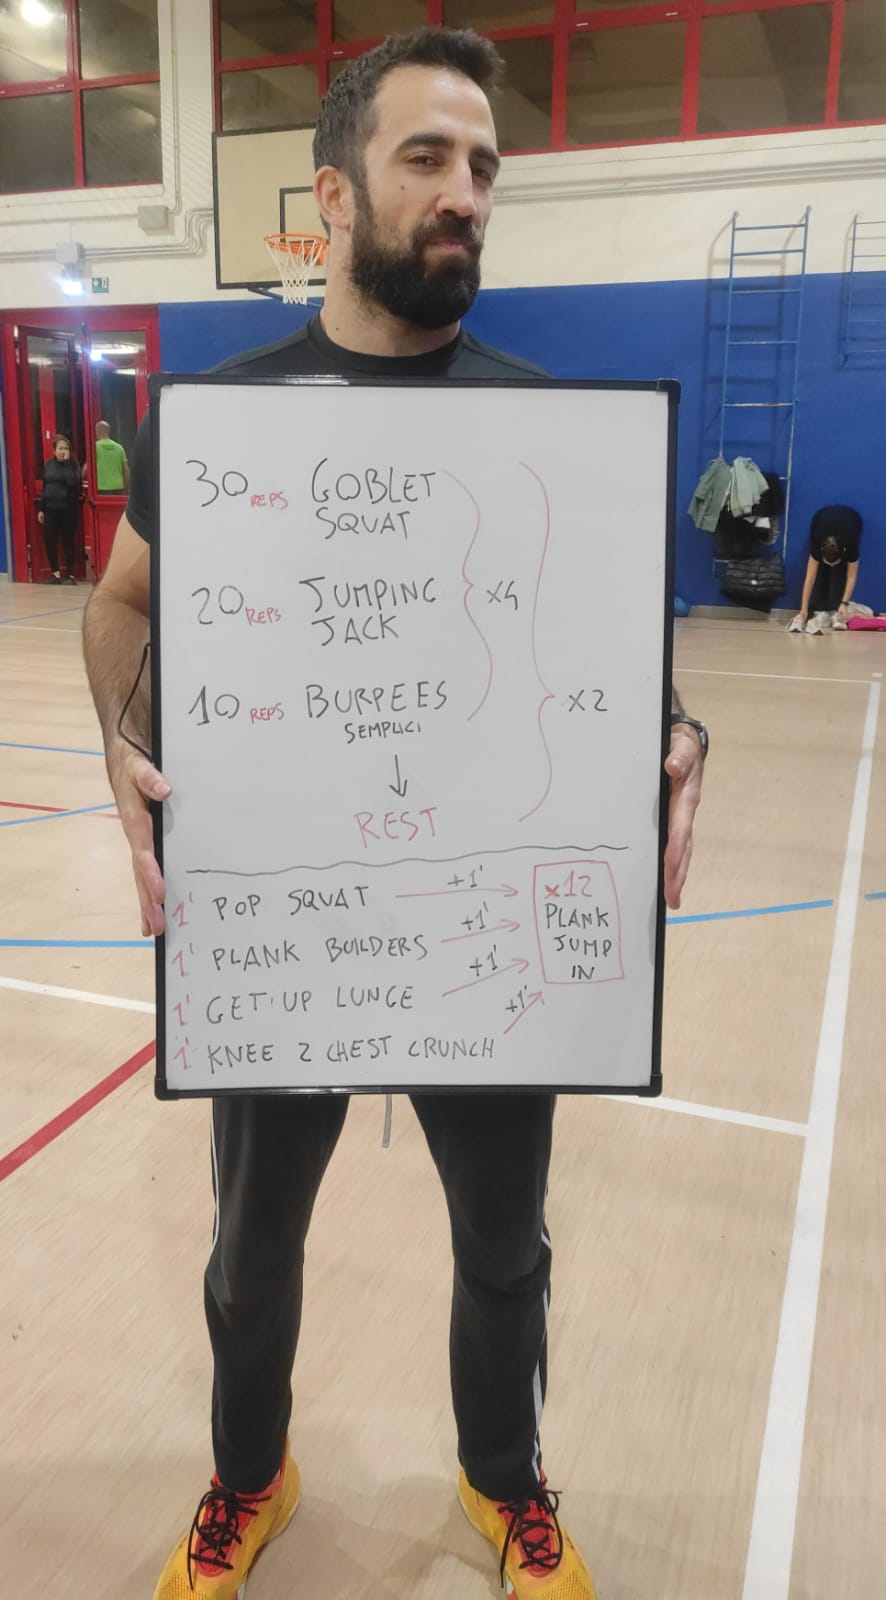 30 REPS GOBLET
SQUAT
x4
x2
20 REPS JUMPING
JACK
10 REPS BURPEES
SEMPLICI
REST
1' POP SQUAT +1'
1' PLANK BUILDERS +1'
1' GET UP LUNGE +1'
1' KNEE 2 CHEST CRUNCH +1'
x12
PLANK
JUMP
IN